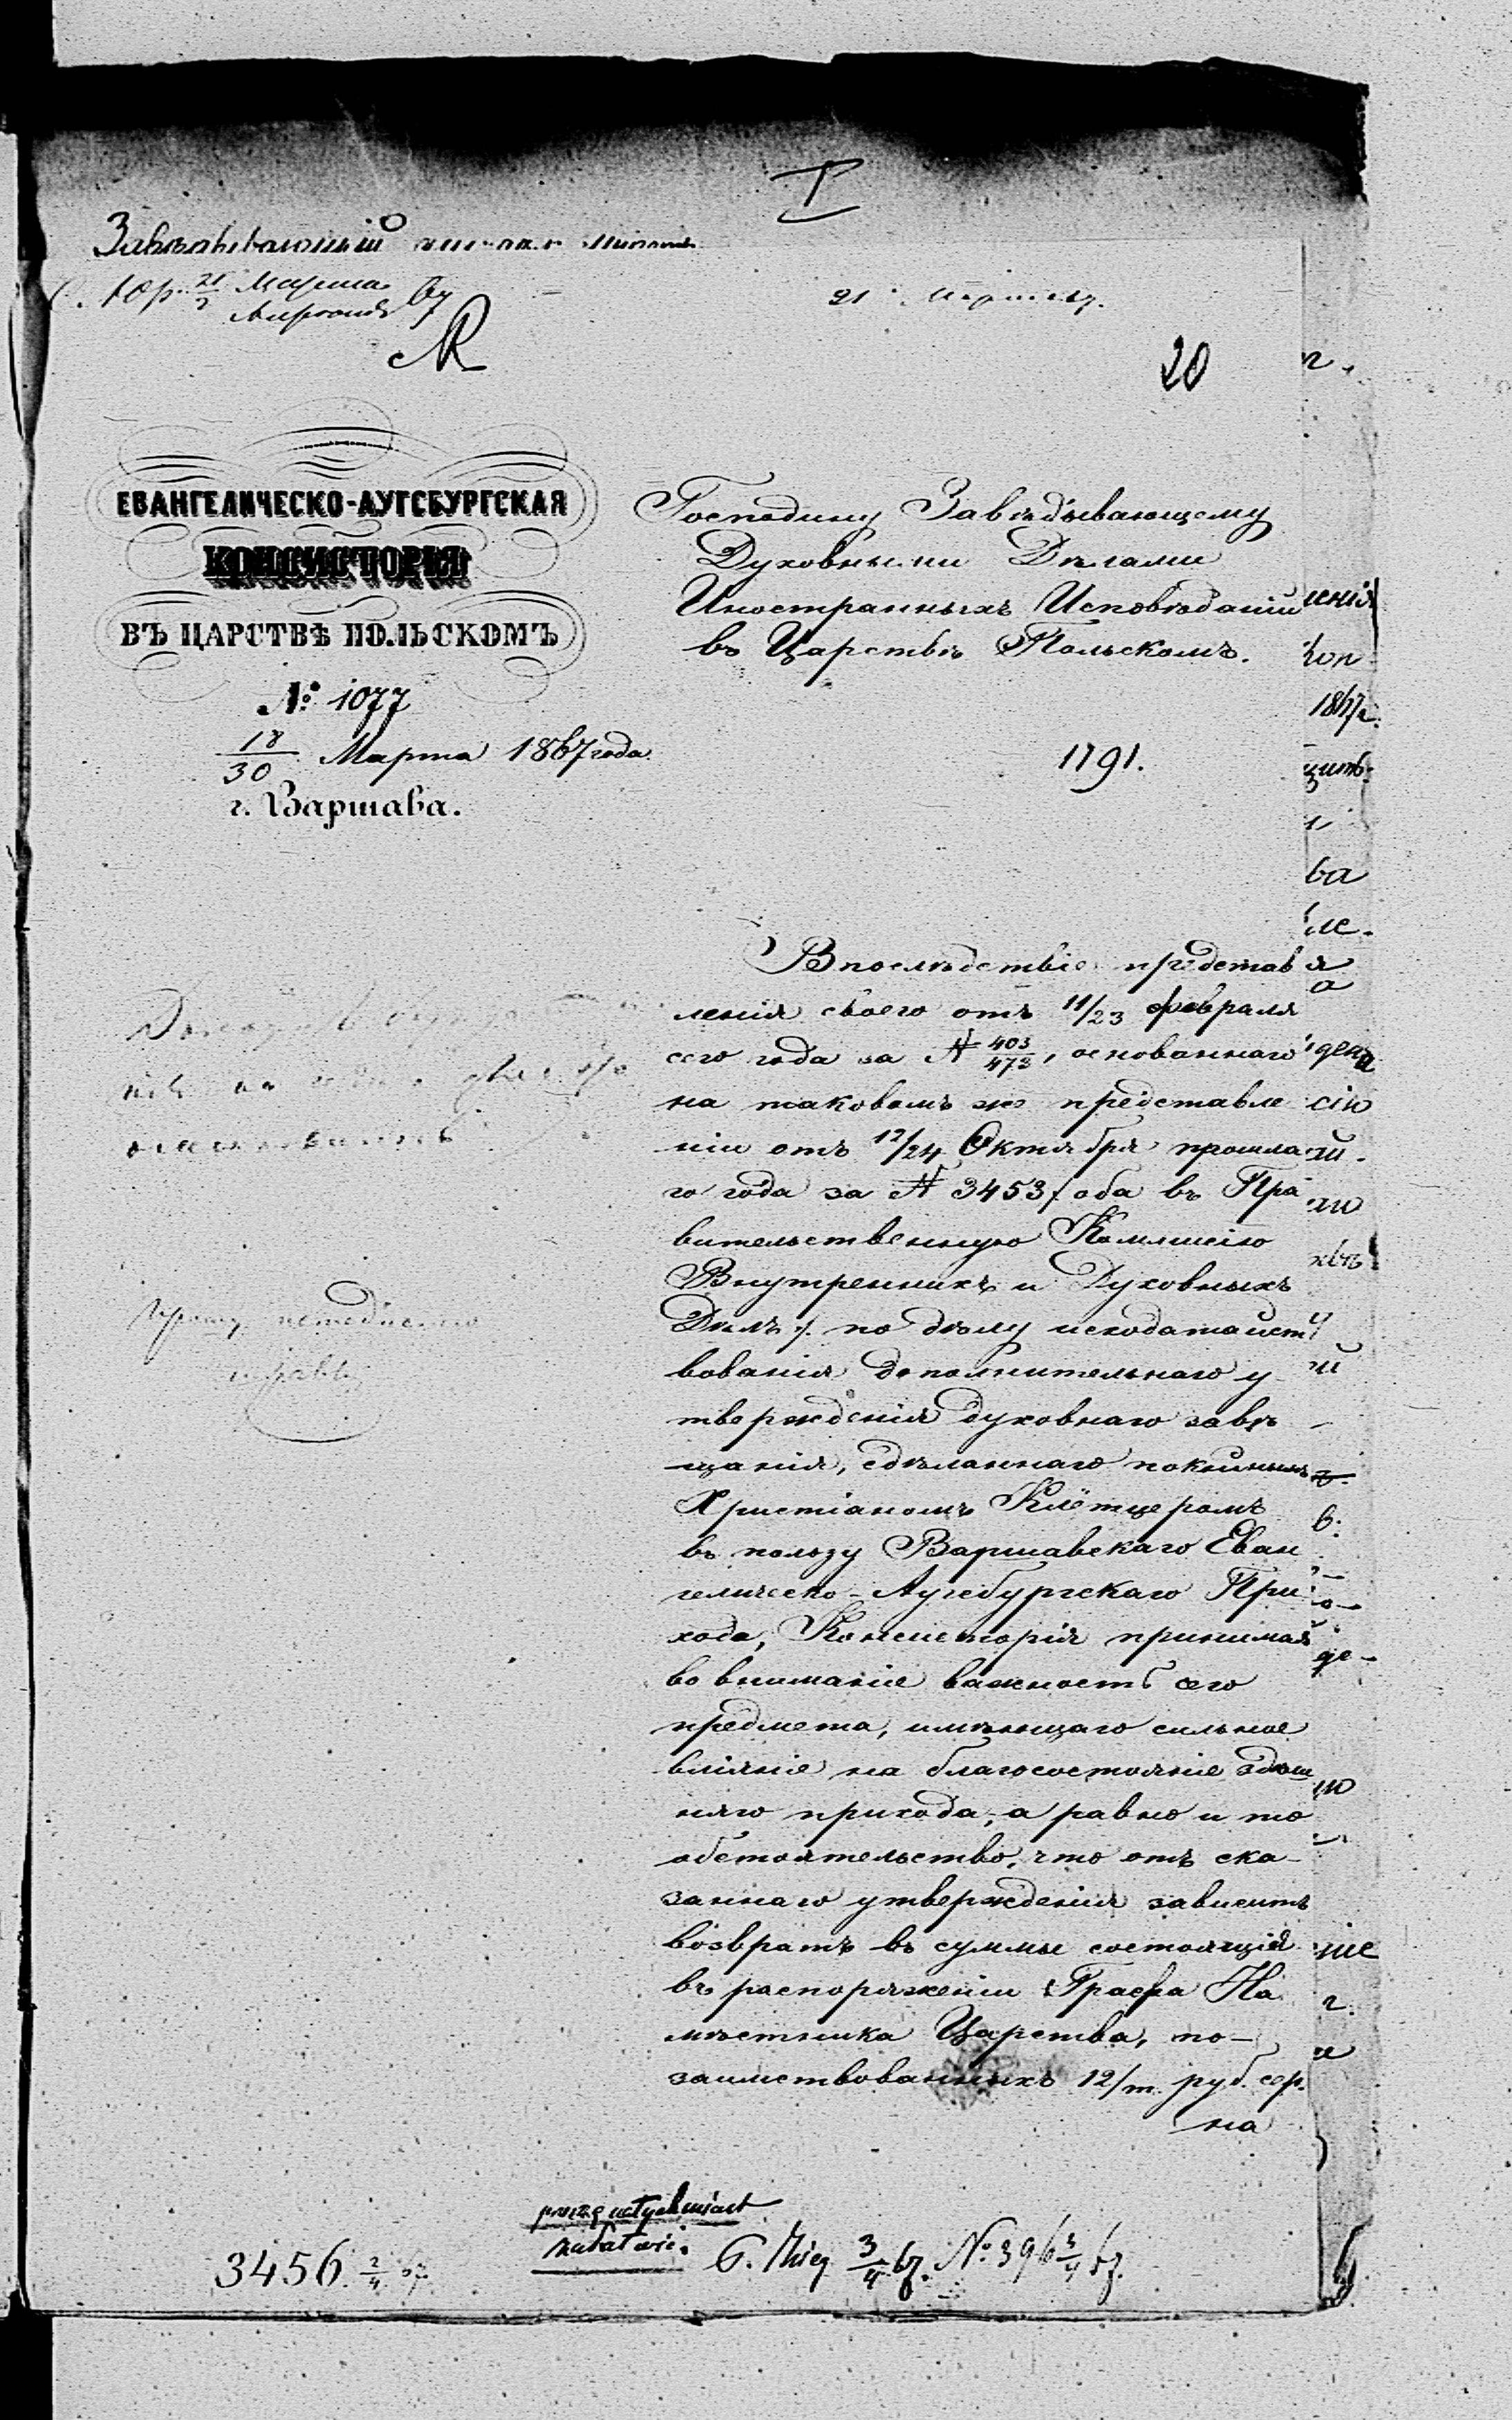 I
Завѣдывающій
21 Марта 67.
20
ЕВАНГЕЛИЧЕСКО-АУГСБУРГСКАЯ
КОНСИСТОРІЯ
ВЪ ЦАРСТВѢ ПОЛЬСКОМЪ
№ 1077
18/30 Марта 1867 года.
г. Варшава.
Господину Завѣдывающему
Духовными Дѣлами
Иностранныхъ Исповѣданій
въ Царствѣ Польскомъ.
1791.
Впослѣдствіе представ
ленія своего отъ 11/23 февраля
сего года за № 403/473, основаннаго
на таковомъ же представле
ніи отъ 12/24 Октября прошла
го года за № 3453 /: оба въ Пра
вительственную Коммисію
Внутреннихъ и Духовныхъ
Дѣлъ :/ по дѣлу исходатайст
вованія дополнительнаго у
твержденія духовнаго завѣ
щанія, сдѣланнаго покойнымъ
Христіаномъ Клётцеромъ
въ пользу Варшавскаго Еван
гелическо-Аугсбургскаго При
хода, Консисторія принимая
во вниманіе важность сего
предмета, имѣющаго сильное
вліяніе на благосостояніе здѣш
няго прихода, а равно и то
обстоятельство, что отъ ска-
заннаго утвержденія зависитъ
возвратъ въ суммы состоящія
въ распоряженіи Графа На
мѣстника Царства, по-
заимствованныхъ 12/т. руб. сер.
на
proszę natychmiast
załatwić.
3456. 2/4 67.
3/4 67. № 396 3/4 67.